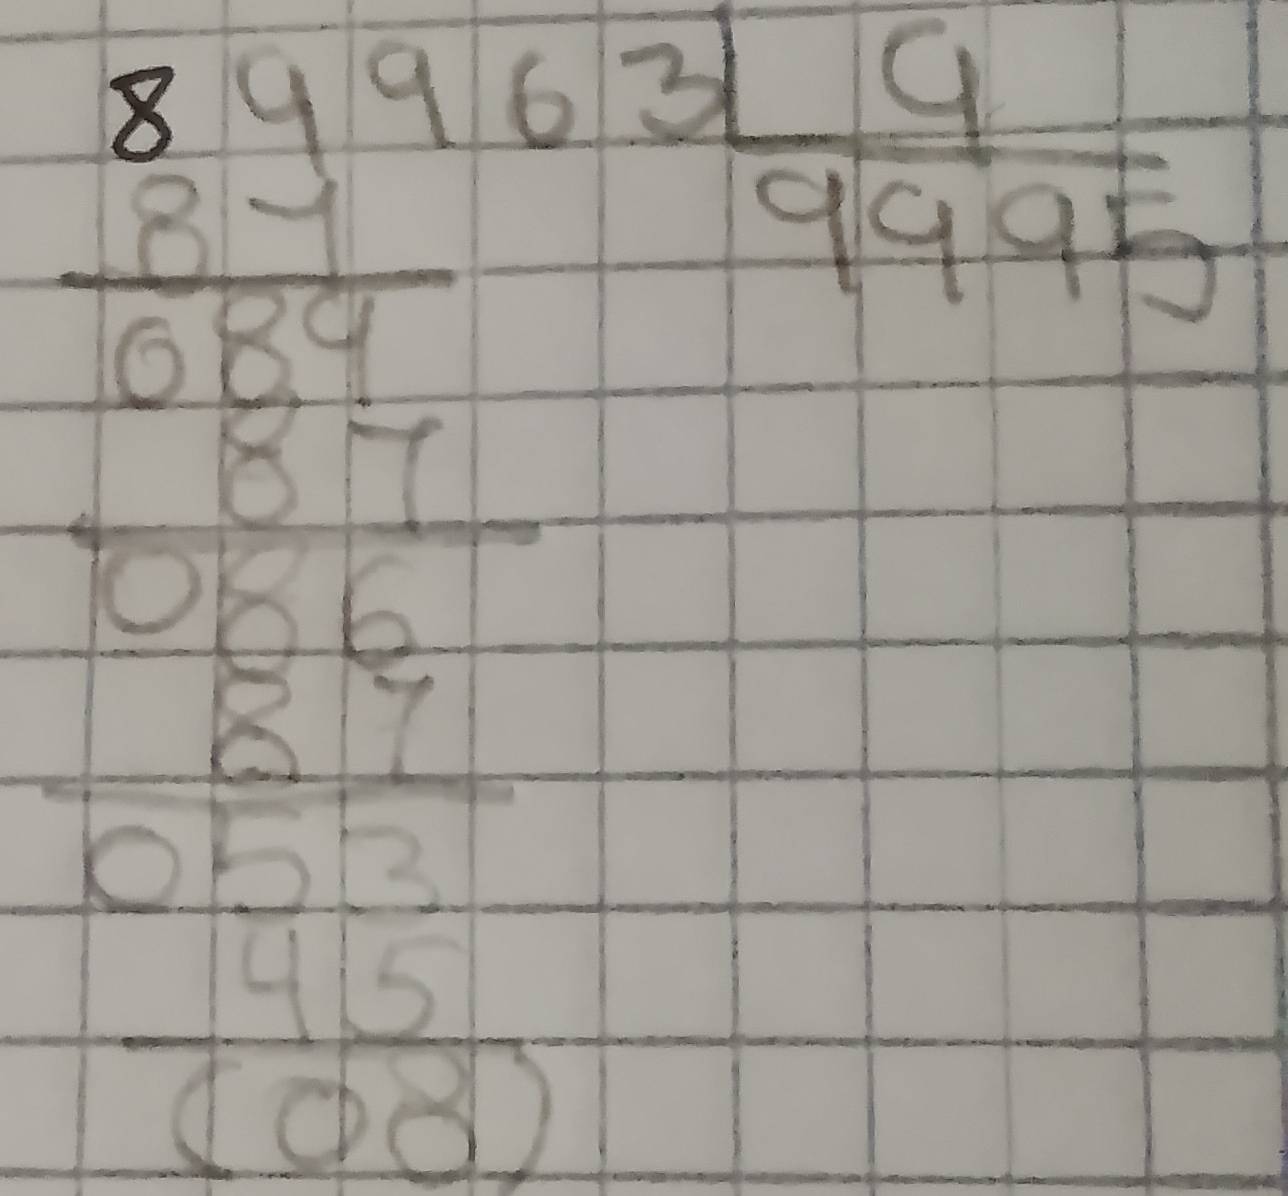 89963 9
81 9995
089
81
086
81
053
45
(08)